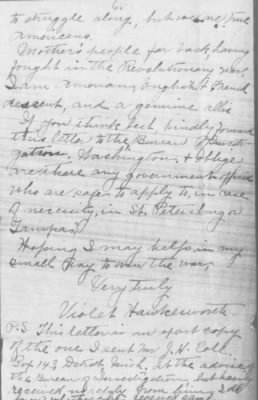 to struggle along, but we are true
Americans.
Mother's people far back having
fought in the Revolutionary war,
I am American, English & French
descent, and a genuine allie
If you think best, kindly forward
this letter to the Bureau of Investi
gation. Washington, & oblige
are there any government officials
who are safe to apply to, in case
of necessity, in St. Petersburg or
Tampa?
Hoping I may help in my
small way to win the war,
Very truly
Violet Hawkesworth.
P.S. This letter is an exact copy
of the one I sent Mr J. H. Cole
Box 143 Detroit Mich. at the advice of
the Bureau of Investigation, but having
received no reply from him, I do